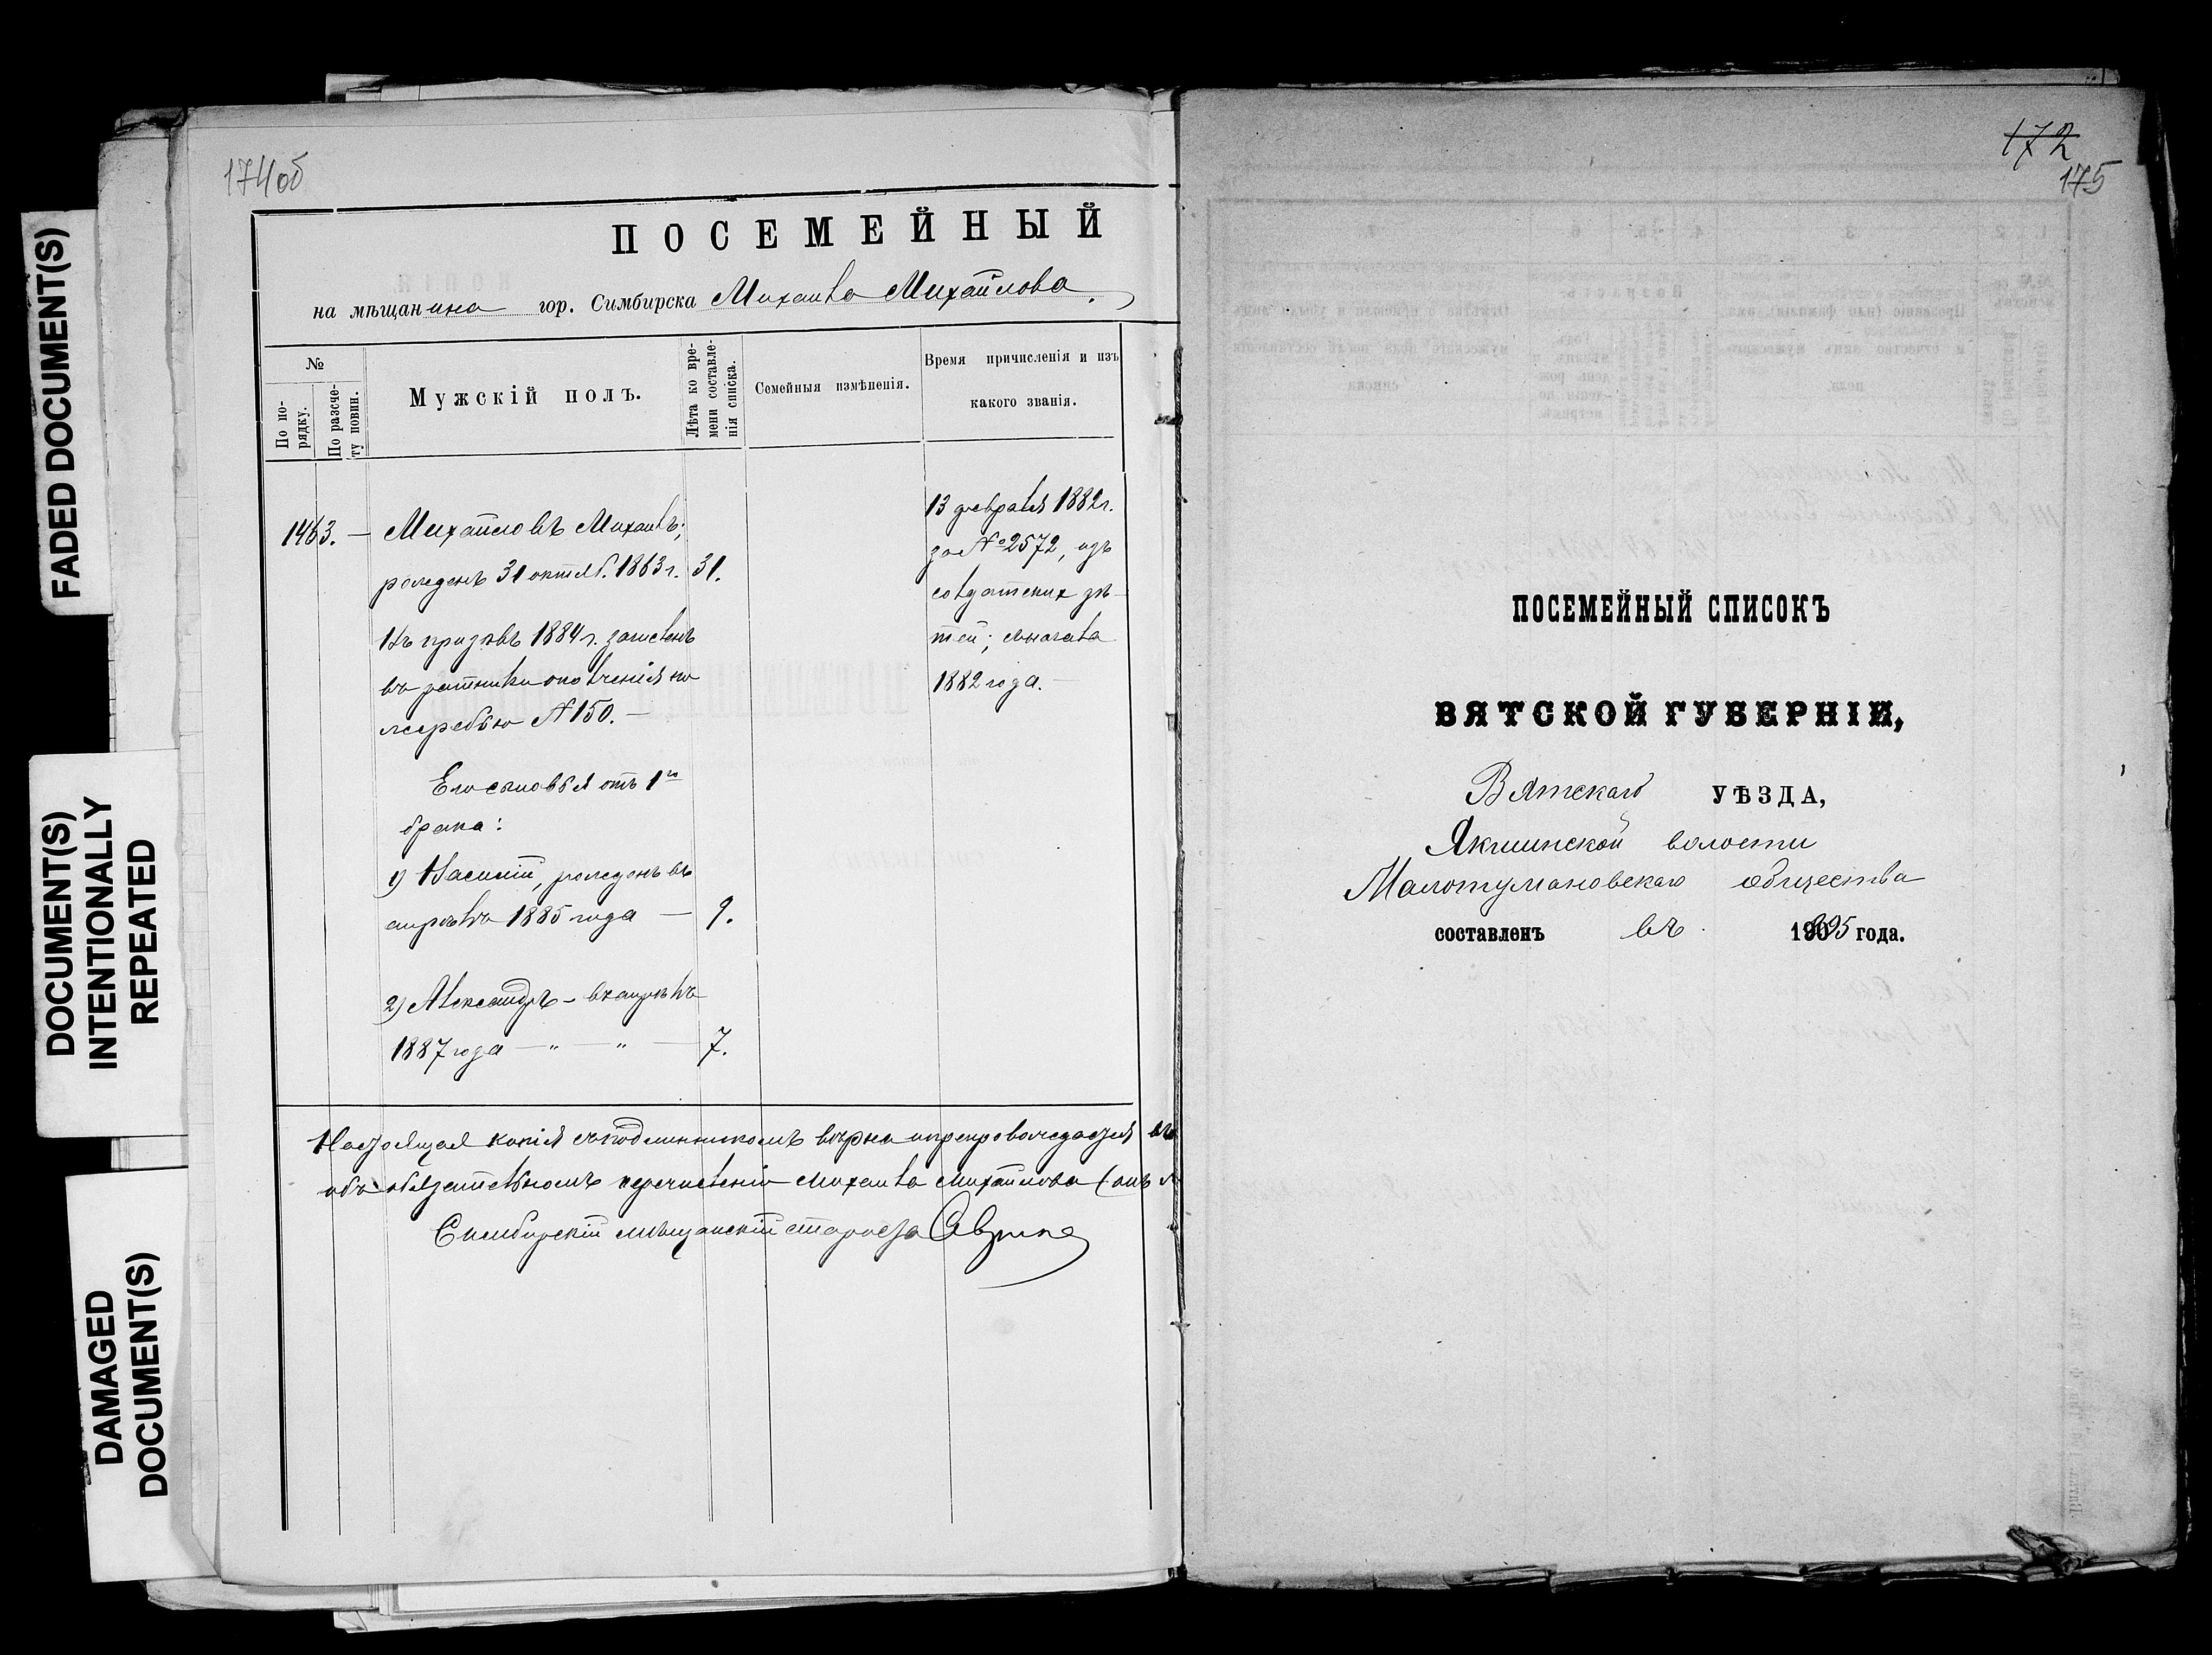 FADED DOCUMENT(S)
DOCUMENT(S)
INTENTIONALLY
REPEATED
DAMAGED
DOCUMENT(S)
174об
ПОСЕМЕЙНЫЙ
на мѣщанина гор. Симбирска Михаила Михайлова.
№
По по-
рядку.
По разсче-
ту повин.
Мужскій полъ.
Лѣта ко вре-
мени составле-
нія списка.
Семейныя измѣненія.
Время причисленія и изъ
какого званія.
1463. — Михайловъ Михаилъ;
рожденъ 31 октяб. 1863 г. 31.
Въ призывъ 1884 г. зачисленъ
въ ратники ополченія по
жеребью № 150. —
Его сыновья отъ 1го
брака:
1) Василій, рожденъ въ
апрѣлѣ 1885 года — 9.
2) Александръ — въ апрѣлѣ
1887 года — " — " — 7.
13 февраля 1882 г.
за № 2572, изъ
солдатских дѣ-
тей; съ начала
1882 года. —
Настоящая копія съ подлинникомъ вѣрна и препровождается въ
объ обязательномъ перечисленіи Михаила Михайлова (онъ
Симбирскій мѣщанскій староста
172
175
ПОСЕМЕЙНЫЙ СПИСОКЪ
ВЯТСКОЙ ГУБЕРНІИ,
Вятскаго УѢЗДА,
Якшинской волости
Малотумановскаго общества
составленъ въ 1895 года.